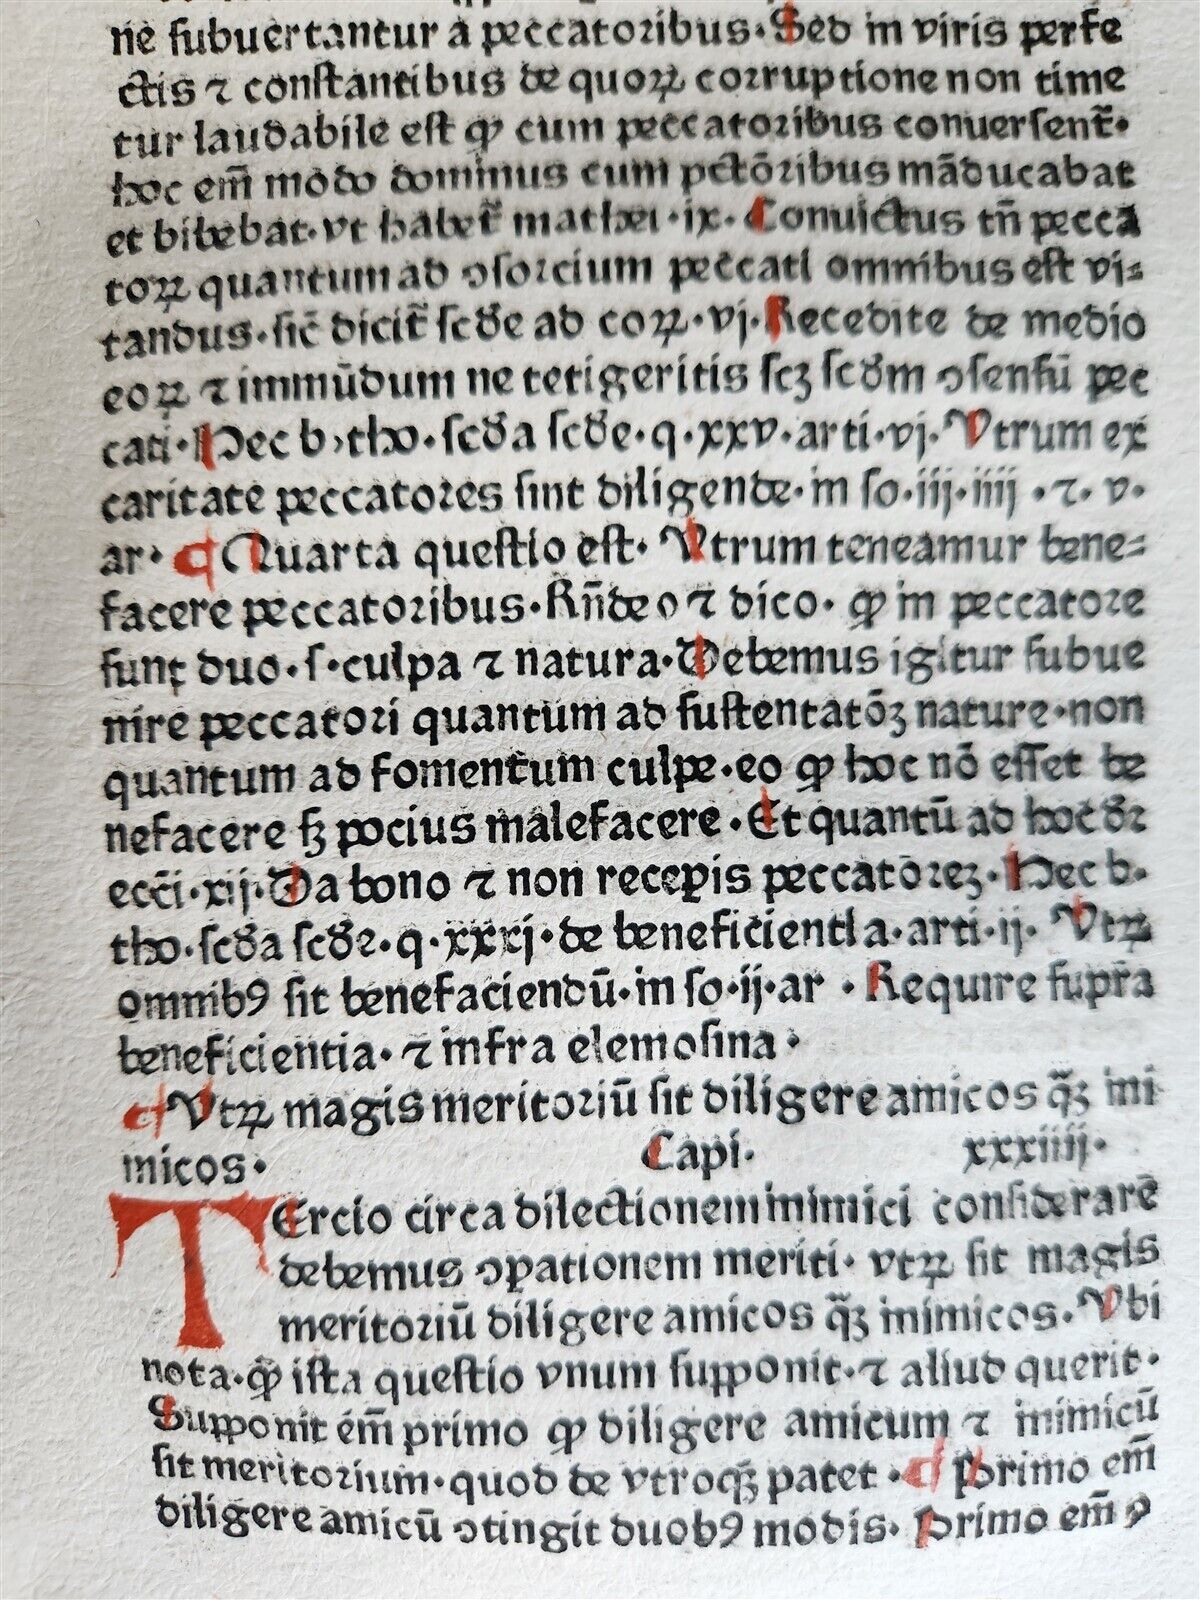 ne subuertantur a peccatoribus. Sed in viris perfe
ctis ⁊ constantibus de quoꝝ corruptione non time
tur laudabile est ꝙ cum peccatoribus conuersent̃.
hoc em̃ modo dominus cum pctōribus māducabat
et bibebat. vt habet̃ mathei .ix. Conuictus tñ pecca
toꝝ quantum ad ꝯsorcium peccati omnibus est vi⸗
tandus. sic̃ dicit̃ scd̃e ad coꝝ. vj. Recedite de medio
eoꝝ ⁊ immūdum ne tetigeritis scꝫ scd̃m ꝯsensū pec
cati. Hec b. tho. scd̃a scd̃e. q. xxv. arti. vj. Vtrum ex
caritate peccatores sint diligende. in so. iij. iiij . ⁊. v.
ar. Quarta questio est. Vtrum teneamur bene⸗
facere peccatoribus. Rñdeo ⁊ dico. ꝙ in peccatore
sunt duo. s. culpa ⁊ natura. Debemus igitur subue
nire peccatori quantum ad sustentatōꝫ nature. non
quantum ad fomentum culpe. eo ꝙ hoc nō esset be
nefacere sꝫ pocius malefacere. Et quantū ad hoc dr̃
ecc̃i. xij. Da bono ⁊ non recepis peccatōreꝫ. Hec b.
tho. scd̃a scd̃e. q. xxxj. de beneficientia. arti. ij. Vtꝝ
omnibꝯ sit benefaciendū. in so. ij. ar . Require supr̃a
beneficientia. ⁊ infra elemosina.
Vtꝝ magis meritoriū sit diligere amicos qͫ̃ꝫ ini
micos. Capi. xxxiiij.
TErcio circa dilectionem inimici considerarē
debemus ꝯꝑationem meriti. vtꝝ sit magis
meritoriū diligere amicos q̃ꝫ inimicos. Vbi
nota. ꝙ ista questio vnum supponit. ⁊ aliud querit.
Supponit em̃ primo ꝙ diligere amicum ⁊ inimicū
sit meritorium. quod de vtroqꝫ patet . Primo em̃
diligere amicū ꝯtingit duobꝯ modis. Primo em̃ ꝓ